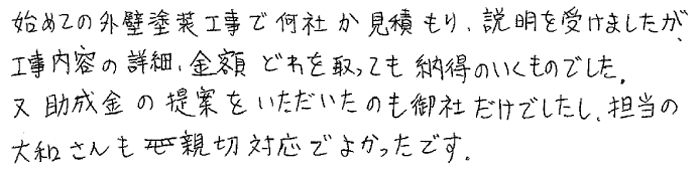 始めての外壁塗装工事で何社か見積もり、説明を受けましたが、
工事内容の詳細、金額どれを取っても納得のいくものでした。
又助成金の提案をいただいたのも御社だけでしたし、担当の
大和さんも親切対応でよかったです。